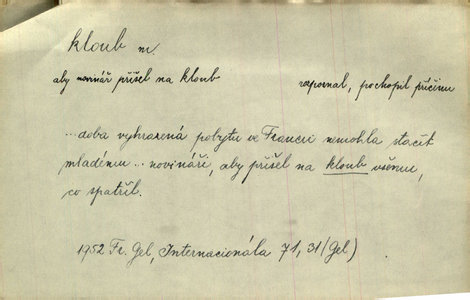 kloub m
aby novinář přišel na kloub rozpoznal, pochopil příčinu
...doba vyhrazená pobytu ve Francii nemohla stačit
mladému... novináři, aby přišel na kloub všemu,
co spatřil.
1952 Fr. Gel, Internacionála 71, 31 (Gel)